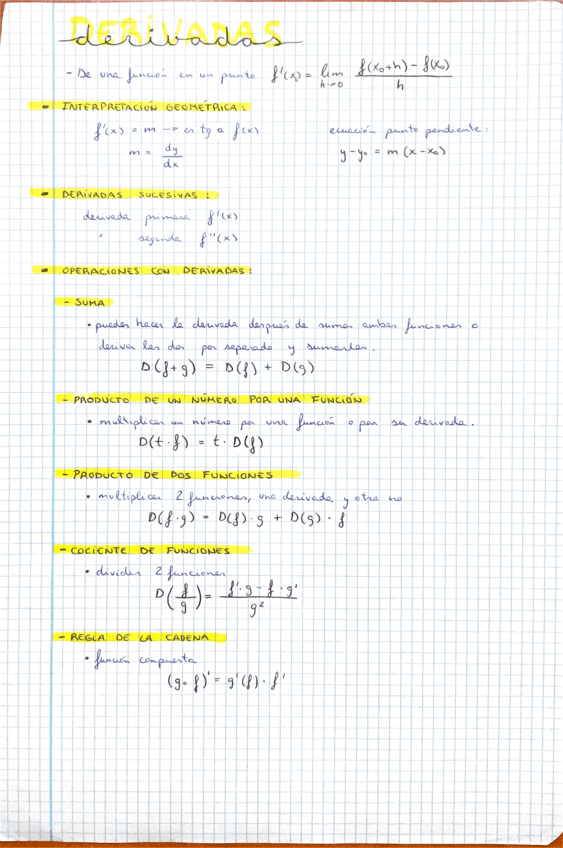 DERIVADAS
derivadas
- De una función en un punto f'(x₀) = lim h→0 f(x₀+h) - f(x₀) / h
• INTERPRETACIÓN GEOMÉTRICA:
f'(x) = m → es tg a f(x) ecuación punto pendiente:
m = dy/dx y-y₀ = m (x-x₀)
• DERIVADAS SUCESIVAS:
derivada primera f'(x)
" segunda f''(x)
• OPERACIONES CON DERIVADAS:
- SUMA
• puedes hacer la derivada después de sumar ambas funciones o
derivar las dos por separado y sumarlas.
D(f+g) = D(f) + D(g)
- PRODUCTO DE UN NÚMERO POR UNA FUNCIÓN
• multiplicar un número por una función o por su derivada.
D(t·f) = t·D(f)
- PRODUCTO DE DOS FUNCIONES
• multiplicar 2 funciones, una derivada y otra no
D(f·g) = D(f)·g + D(g)·f
- COCIENTE DE FUNCIONES
• dividir 2 funciones
D(f/g) = f'·g - f·g' / g²
- REGLA DE LA CADENA
• función compuesta
(g∘f)' = g'(f)·f'